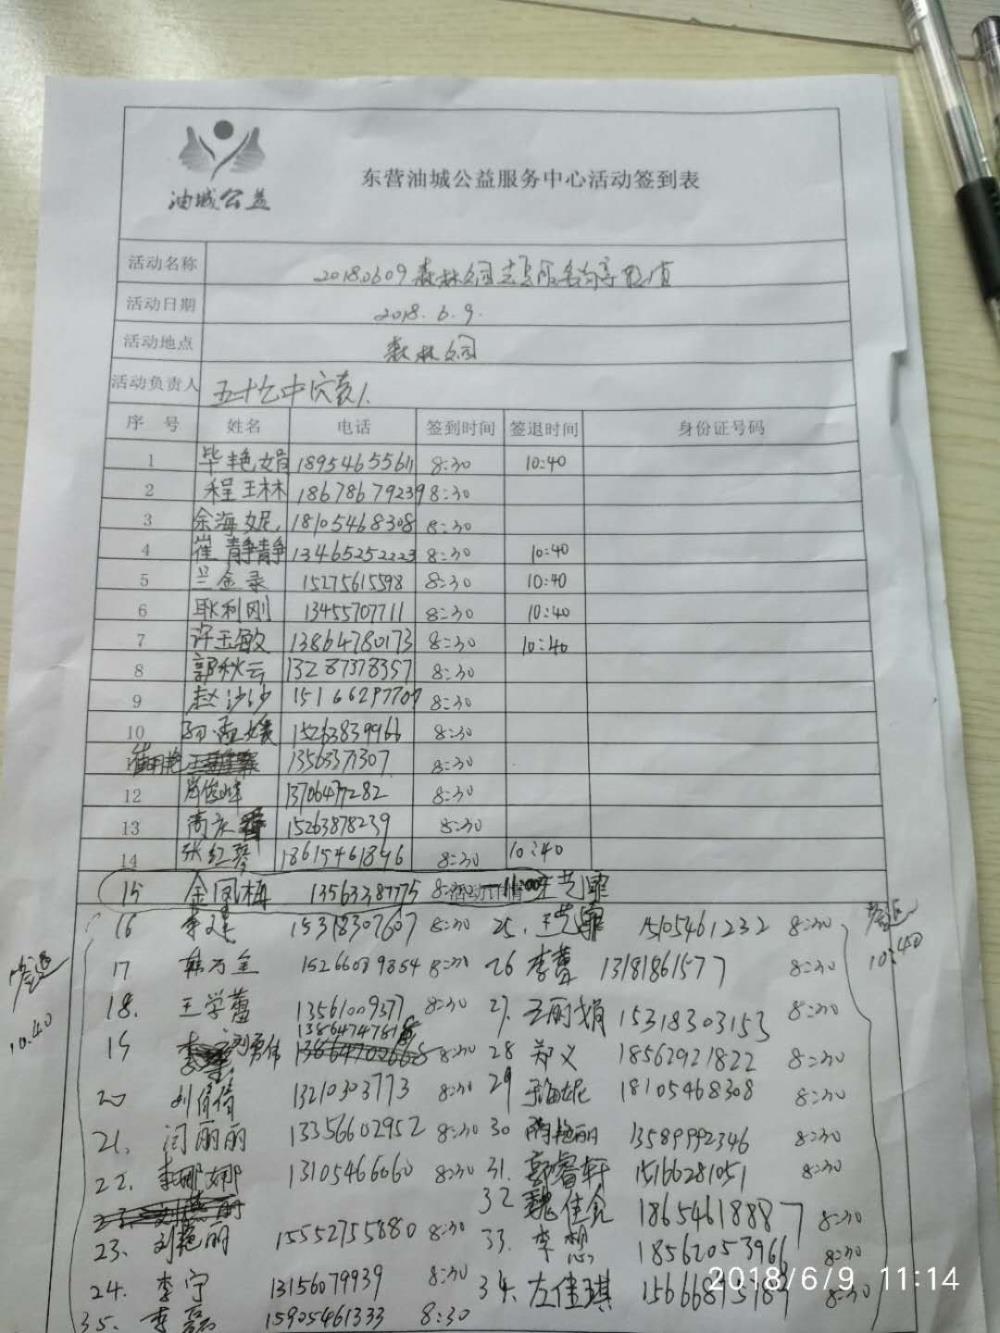 油城公益
东营油城公益服务中心活动签到表
活动名称 20180609森林公园志愿服务
活动日期 2018.6.9.
活动地点 森林公园
活动负责人
序 号 姓名 电话 签到时间 签退时间 身份证号码
1 毕艳娟 18954655611 8:30 10:40
2 程玉林 18678679239 8:30
3 余海妮 18105468308 8:30
4 崔静静 13465252223 8:30 10:40
5 兰金录 15275615598 8:30 10:40
6 耿利刚 13455707711 8:30 10:40
7 许玉敏 13864780173 8:30 10:40
8 郭秋云 13287378357 8:30
9 赵沙沙 15166297707 8:30
10 15263839966 8:30
13563371307 8:30
12 肖俊峰 13706477282 8:30
13 15263878239 8:30
14 张红琴 18615461846 8:30 10:40
15 金凤梅 13563387775
16 15318307607 8:30 25. 王艺霏 15105461232 8:30 签退
17 韩万金 15266089854 8:30 26 李蕾 13181861577 8:30 10:40
签退 18. 王学蕾 13561009377 8:30 27. 王丽娟 15318303153 8:30
10.40 19 刘勇伟 8:30 28 郑义 18562921822 8:30
20 刘倩倩 13210303773 8:30 29 18105468308 8:30
21. 闫丽丽 13356602952 8:30 30 13589992346 8:30
22. 李娜娜 13105466060 8:30 31. 郭睿轩 15166281051 8:30
32 18654618887 8:30
23、 刘艳丽 15552755880 8:30 33. 李想 18562053966 8:30
24. 李宁 13156079939 8:30 34. 左佳琪 8:30
35. 李磊 15905461333 8:30
2018/6/9 11:14